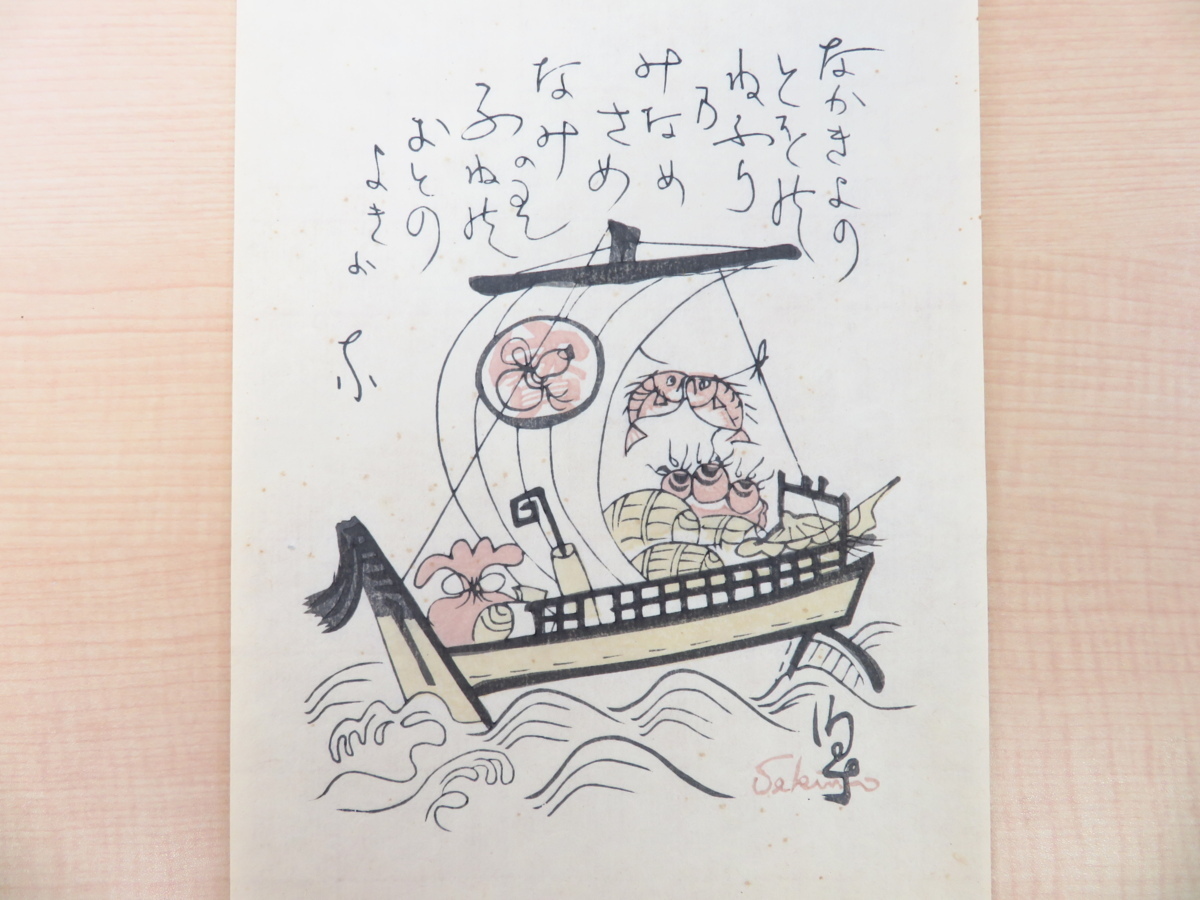 なかきよの
とをの
ねふり
乃
みなめ
さめ
なみ
のり
ふねの
おとの
よきか
な
Sekino